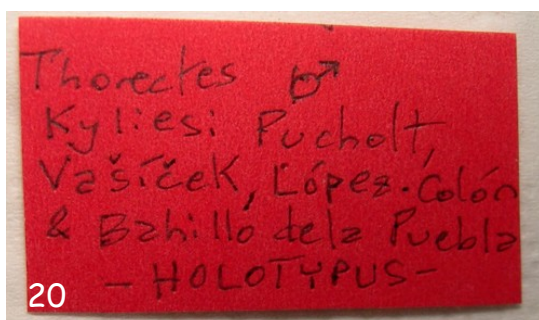 Thorectes ♂
Kyliesi Pucholt,
Vašíček, López-Colón
& Bahillo dela Puebla
- HOLOTYPUS -
20